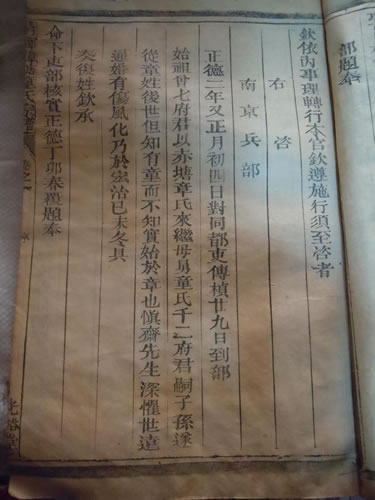 部題奉
欽依內事理轉行本官欽遵施行須至咨者
右咨
南京兵部
正德二年又正月初四日對同都吏傅楨廿九日到部
始祖廿七府君以赤塘章氏來繼母舅童氏千二府君嗣子孫遂
從童姓後世但知有童而不知實始於章也慎齋先生深懼世遠
通婚有傷風化乃於宏治己未冬具
奏復姓欽承
命下吏部核實正德丁卯春覆題奉
卷之一
光裕堂